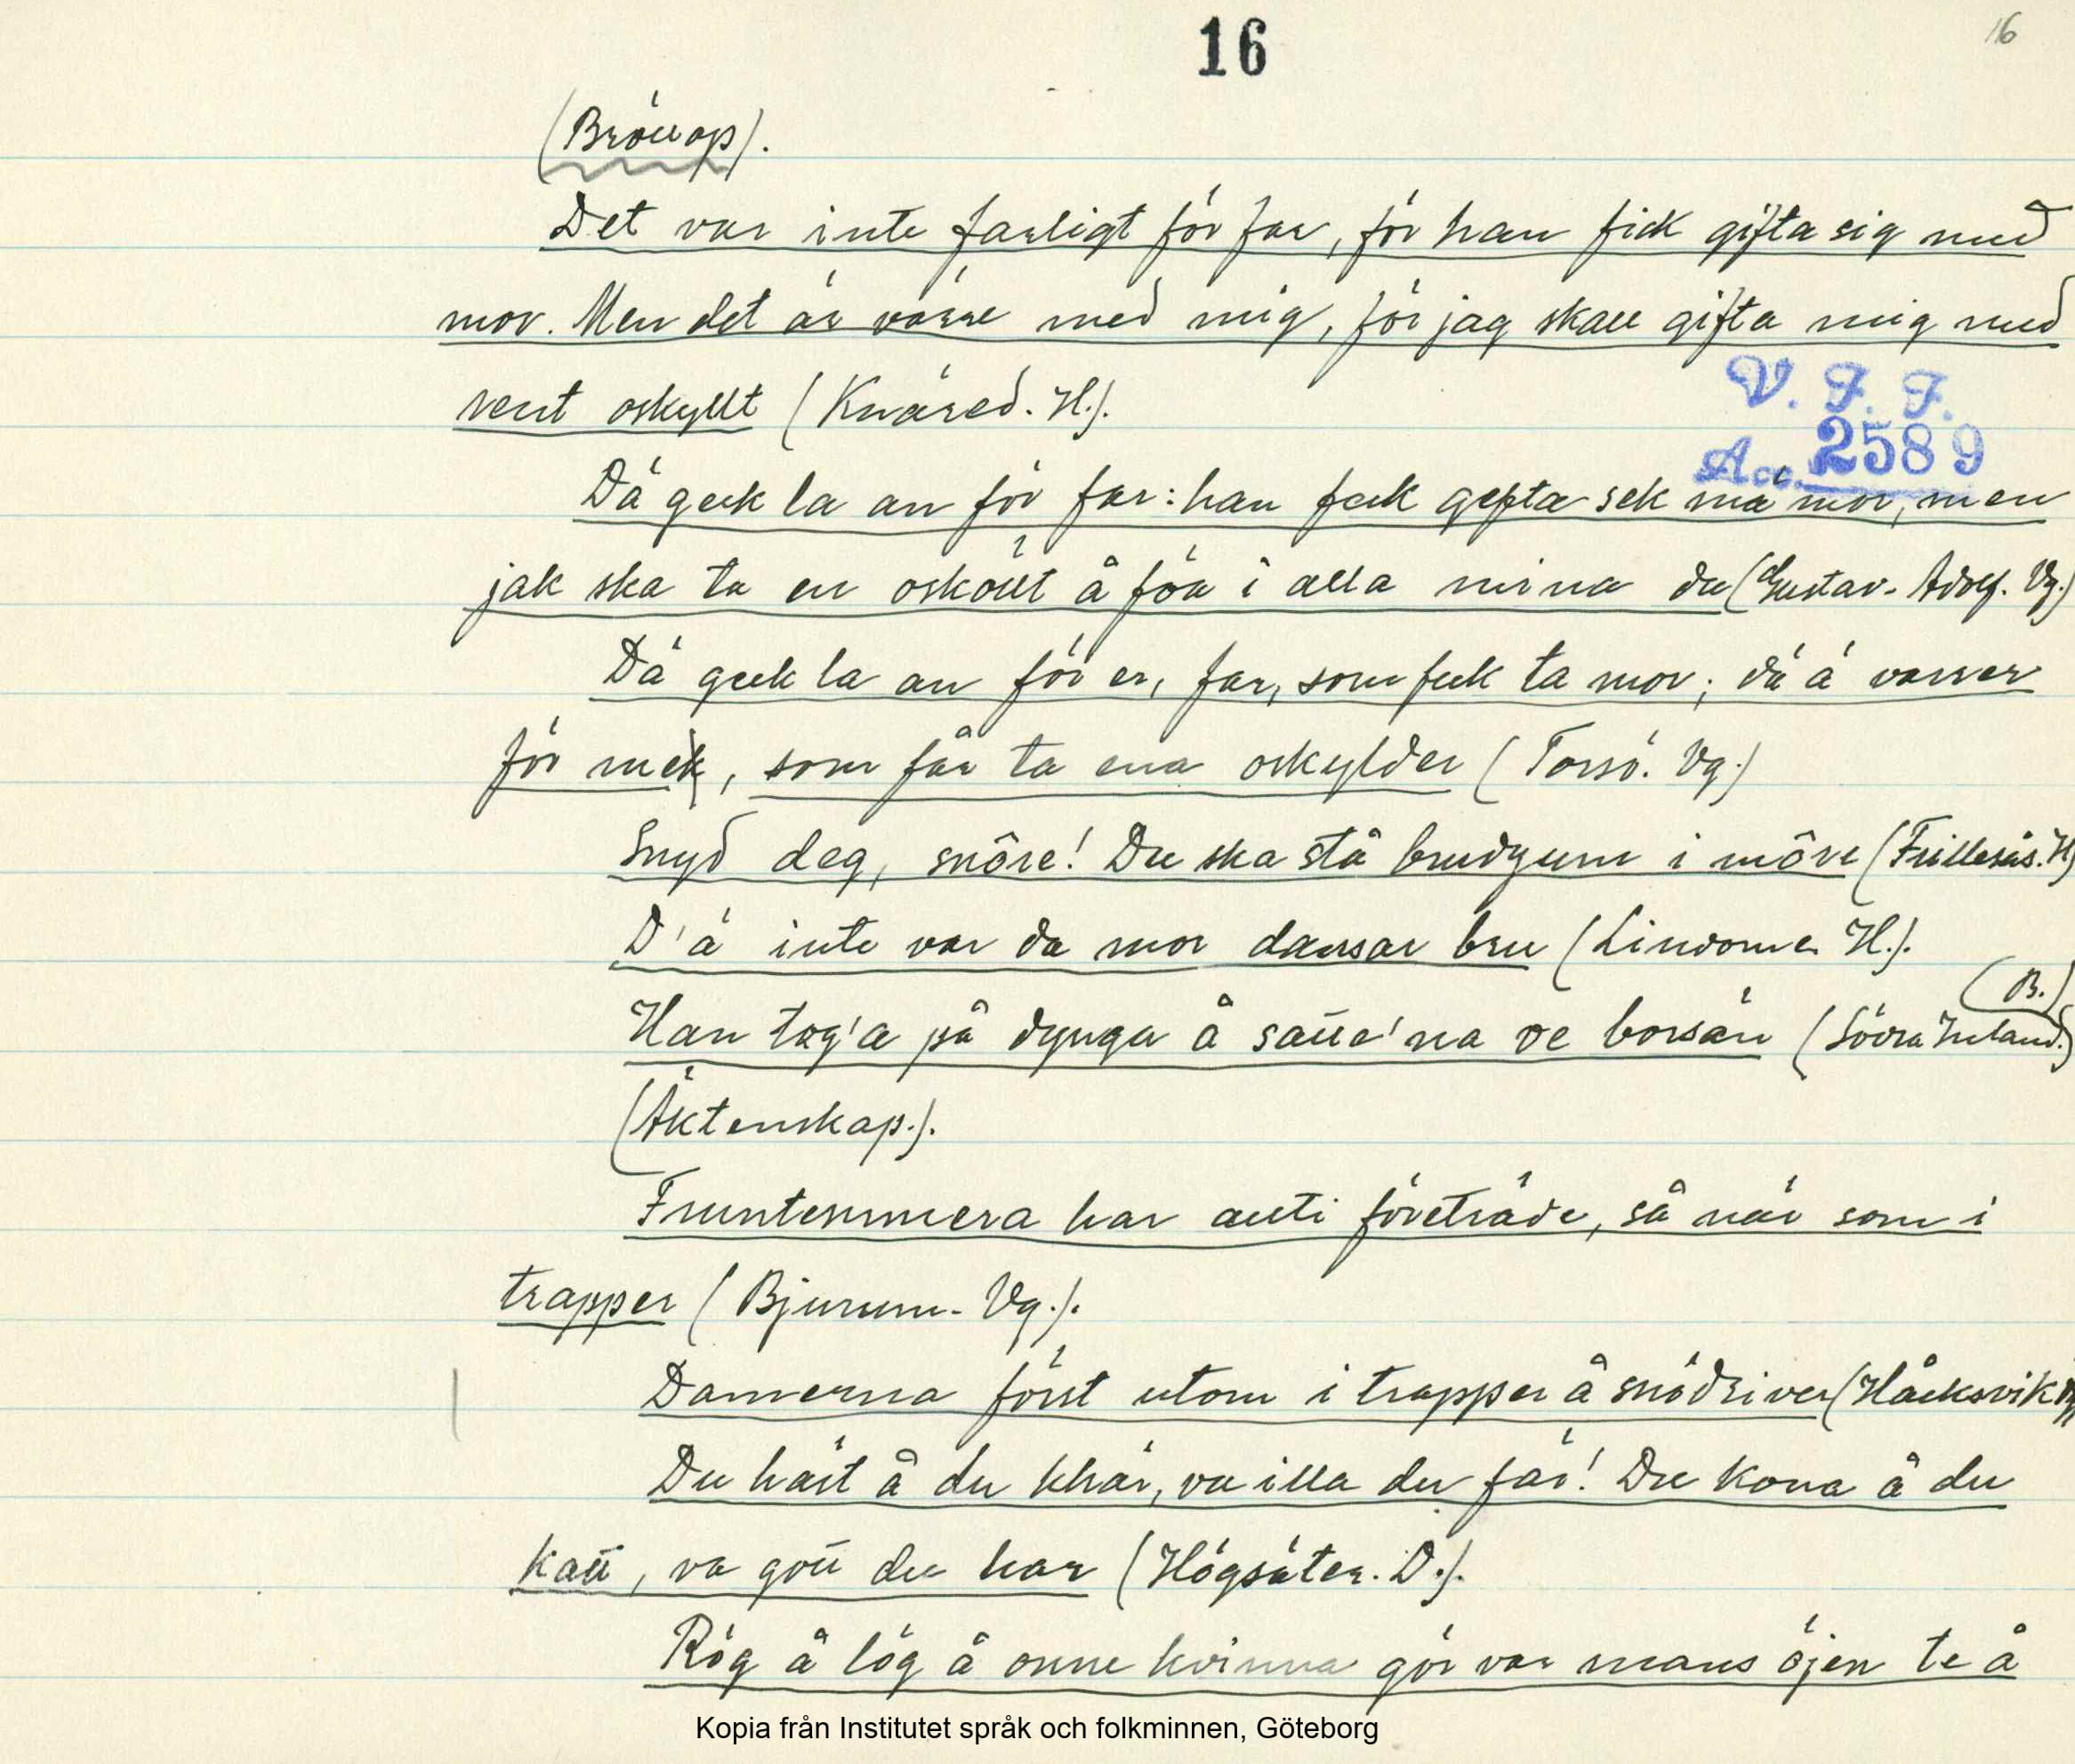 16
16
(Bröllop).
Det var inte farligt för far, för han fick gifta sig med
mor. Men det är värre med mig, för jag skall gifta mig med
rent oskyllt (Knäred. H.).
V. F. F.
Acc. 2589
Dä geck la an för far: han feck gefta sek mä mor, men
jak ska ta en osköllt å föa i alla mina da (Gustav-Adolf. Vg.)
Dä geck la an för er, far, som feck ta mor; dä ä varrer
för mek, som får ta ena oskylder (Torsö. Vg.)
Snyd deg, snôre! Du ska stå brudgum i môre (Frillesås. H)
D'ä inte var da mor dansar bru (Lindome. H.).
Han tog'a på dynga å salle'na ve borsän (Södra Inland.)
(B.)
(Äktenskap.).
Fruntemmera har allti företräde, så när som i
trapper (Bjurum. Vg.).
Damerna först utom i trapper å snödriver (Håcksvik Vg)
Du häst å du khär, va illa du får! Du kona å du
kall, va gott du har (Högsäter. D.).
Rög å lög å onne kvinna gör var mans öjen te å
Kopia från Institutet språk och folkminnen, Göteborg